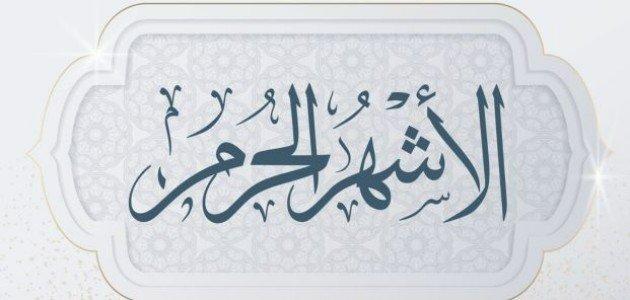 الأشْهُر الحُرُم